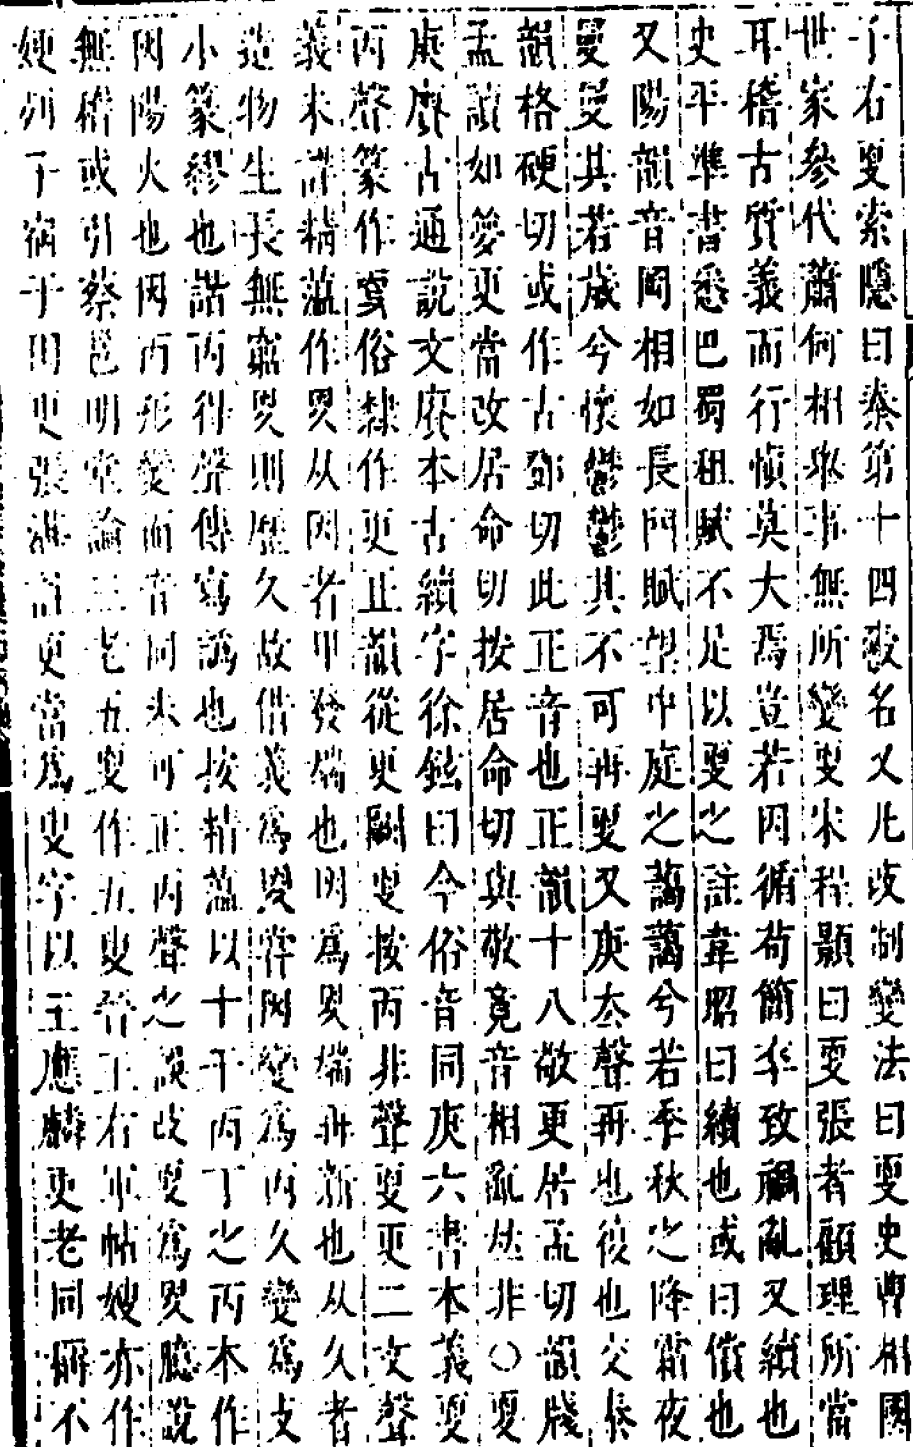 子右㪅索隱曰秦第十四殽名又凡改制變法曰㪅史曹相國
世家參代蕭何相舉事無所變㪅宋程顥曰㪅張者顧理所當
耳稽古質義而行愼莫大焉豈若因循苟簡卒致禍亂又續也
史平準書悉巴蜀租賦不足以㪅之註韋昭曰續也或曰償也
又陽韻音岡相如長門賦望中庭之藹藹兮若季秋之降霜夜
曼曼其若歲兮懷鬱鬱其不可再㪅又庚去聲再也復也交
韻格硬切或作古鄧切此正音也正韻十八敬更居孟切韻牋
孟讀如孿更當改居命切按居命切與敬竟音相亂丛非○㪅
庚賡古通說文賡本古續字徐鉉曰今俗音同庚六書本義㪅
丙聲篆作㪅俗隸作更正韻從更闕㪅按丙非聲㪅更二文聲
義未詳精蘊作㪅从因者甲發端也因爲㪅端再新也从久者
造物生長無窮㪅則歷久故借義爲㪅㡯因變爲丙久變爲攴
小篆繆也諧丙得聲傳寫譌也按精蘊以十干丙丁之丙本作
因陽火也因丙形變而音同未可正丙聲之誤改㪅爲㪅臆說
無稽或引蔡邕明堂論三老五㪅作五叟晉王右軍帖嫂亦作
㛐列子宿于田更張湛註更當爲叟字以王應麟更老同稱不